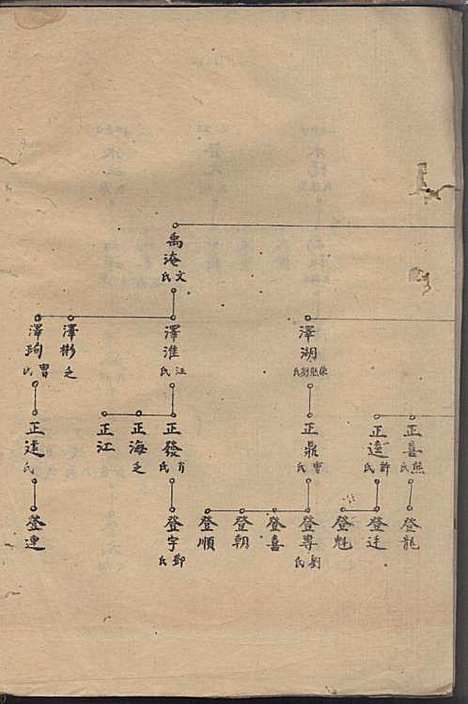 禹淹 文氏
澤湖
澤淮 汪氏
澤彬 乏
澤珣 曹氏
正喜 熊氏
正遠 許氏
正鼎 曹氏
正發 肖氏
正海 乏
正江
正達 氏
登龍
登廷
登魁
登專 劉氏
登喜
登朝
登順
登字 鄧氏
登連